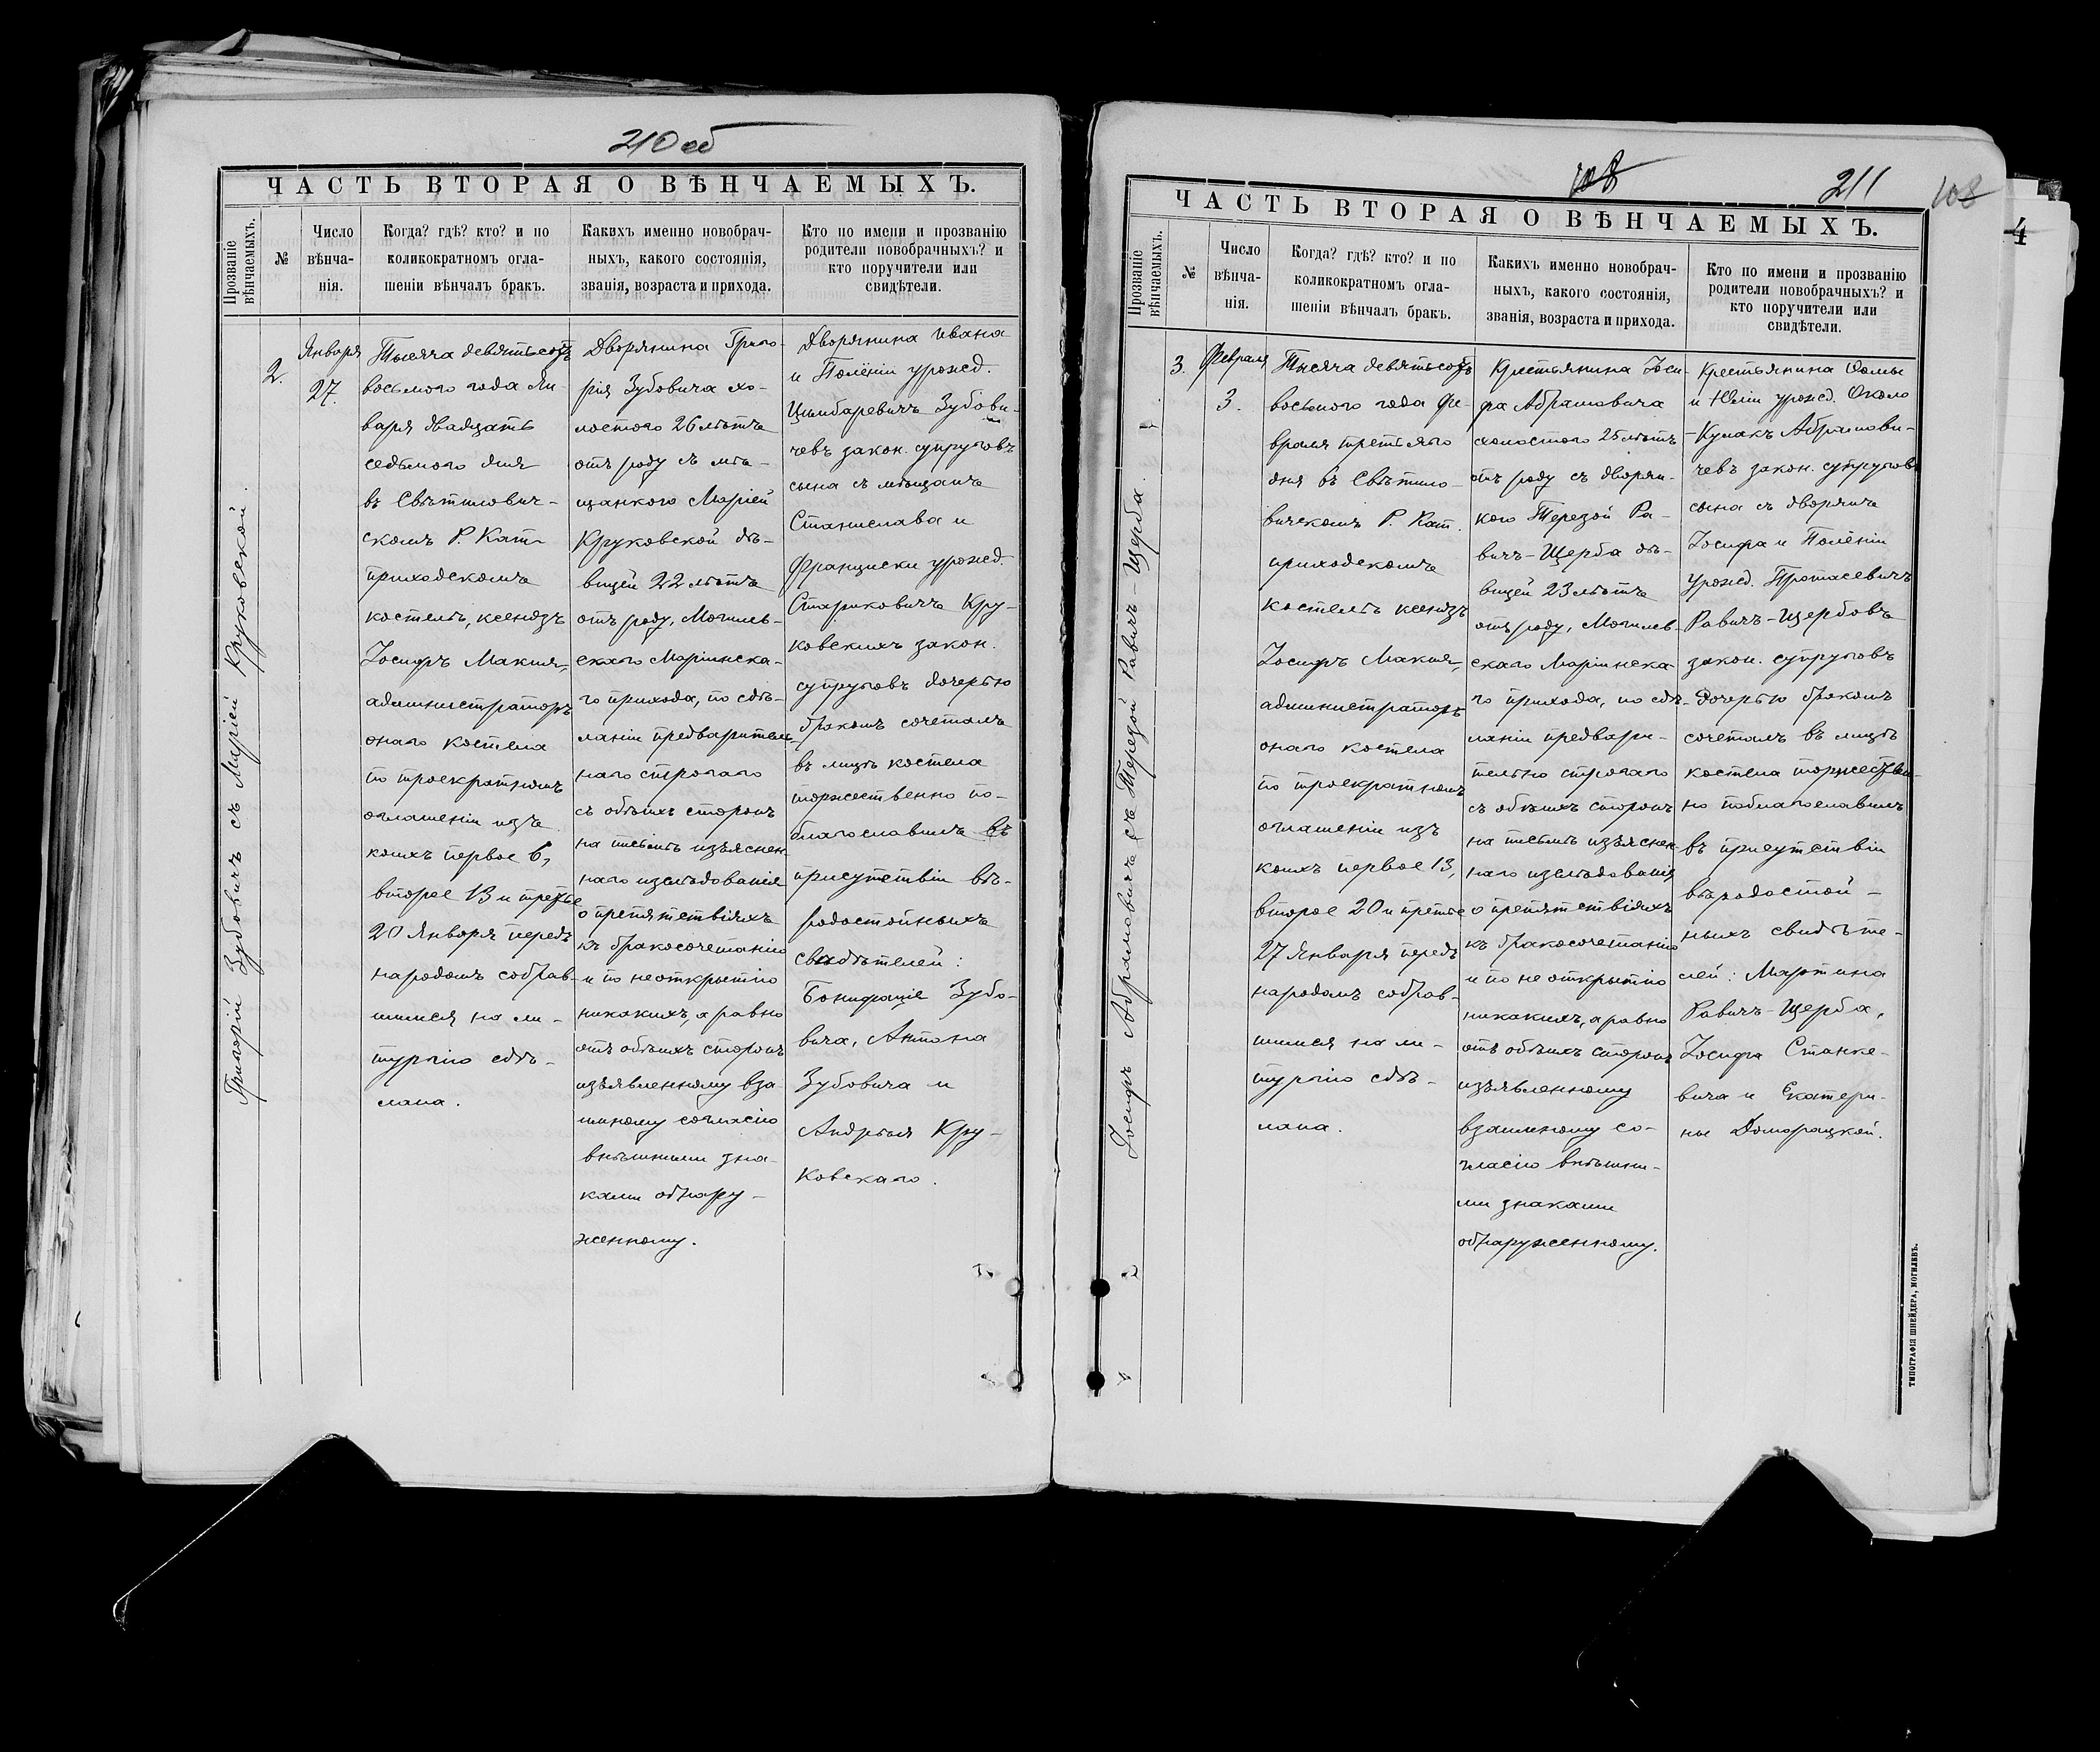 210 об
ЧАСТЬ ВТОРАЯ О ВѢНЧАЕМЫХЪ.
Прозваніе вѣнчаемыхъ.
№
Число
вѣнча-
нія.
Когда? гдѣ? кто? и по
коликократномъ огла-
шеніи вѣнчалъ бракъ.
Какихъ именно новобрач-
ныхъ, какого состоянія,
званія, возраста и прихода.
Кто по имени и прозванію
родители новобрачныхъ? и
кто поручители или
свидѣтели.
Григорій Зубовичъ съ Маріей Круковской.
2.
Января
27.
Тысяча девятьсотъ
восьмого года Ян-
варя двадцать
седьмого дня
въ Свѣтилович-
скомъ Р. Кат.
приходскомъ
костелѣ, ксендзъ
Іосифъ Макия,
администраторъ
онаго костела
по троекратномъ
оглашеніи изъ
коихъ первое 6,
второе 13 и третье
20 Января передъ
народомъ собрав-
шимся на ли-
тургію сдѣ-
лана.
Дворянина Григо-
рія Зубовича хо-
лостого 26 лѣтъ
отъ роду съ мѣ-
щанкого Маріей
Круковской дѣ-
вицей 22 лѣтъ
отъ роду, Могилев-
скаго Маріинска-
го прихода, по сдѣ-
ланіи предваритель-
наго строгаго
съ обѣихъ сторонъ
на письмѣ изъяснен-
наго изслѣдованія
о препятствіяхъ
къ бракосочетанію
и по неоткрытію
никакихъ, а равно
отъ обѣихъ сторонъ
изъявленному вза-
имному согласію
внѣшними зна-
ками обнару-
женному.
Дворянина Ивана
и Полёніи урожд.
Цимбаревичъ Зубови-
чевъ закон. супруговъ
сына съ мѣщанъ
Станислава и
Франциски урожд.
Стариковичъ Кру-
ковскихъ закон.
супруговъ дочерью
бракомъ сочеталъ
въ лицѣ костела
торжественно по-
благословилъ въ
присутствіи вѣ-
родостойныхъ
свидѣтелей:
Бонифація Зубо-
вича, Антона
Зубовича и
Андрея Кру-
ковскаго.
108
211
108
4
ЧАСТЬ ВТОРАЯ О ВѢНЧАЕМЫХЪ.
Прозваніе вѣнчаемыхъ.
№
Число
вѣнча-
нія.
Когда? гдѣ? кто? и по
коликократномъ огла-
шеніи вѣнчалъ бракъ.
Какихъ именно новобрач-
ныхъ, какого состоянія,
званія, возраста и прихода.
Кто по имени и прозванію
родители новобрачныхъ? и
кто поручители или
свидѣтели.
Іосифъ Абрамовичъ съ Терезой Равичъ-Щерба.
3.
Февраля
3.
Тысяча девятьсотъ
восьмого года Фе-
враля третьяго
дня въ Свѣтило-
вичскомъ Р. Кат.
приходскомъ
костелѣ ксендзъ
Іосифъ Макия,
администраторъ
онаго костела
по троекратномъ
оглашеніи изъ
коихъ первое 13,
второе 20 и третье
27 Января передъ
народомъ собрав-
шимся на ли-
тургію сдѣ-
лана.
Крестьянина Іоси-
фа Абрамовича
холостого 25 лѣтъ
отъ роду съ дворян-
кого Терезой Ра-
вичъ-Щерба дѣ-
вицей 23 лѣтъ
отъ роду, Могилев-
скаго Маріинска-
го прихода, по сдѣ-
ланіи предвари-
тельно строгаго
съ обѣихъ сторонъ
на письмѣ изъяснен-
наго изслѣдованія
о препятствіяхъ
къ бракосочетанію
и по не открытію
никакихъ, а равно
отъ обѣихъ сторонъ
изъявленному
взаимному со-
гласію внѣшни-
ми знаками
обнаруженному.
Крестьянина Ѳомы
и Юліи урожд. Около
-Кулакъ Абрамови-
чевъ закон. супруговъ
сына съ дворянъ
Іосифа и Полёніи
урожд. Протасевичъ
Равичъ-Щербовъ
закон. супруговъ
дочерью бракомъ
сочеталъ въ лицѣ
костела торжествен-
но поблагословилъ
въ присутствіи
вѣродостой-
ныхъ свидѣте-
лей: Мартина
Равичъ-Щерба,
Іосифа Станке-
вича и Екатери-
ны Доморацкой.
ТИПОГРАФІЯ ШНЕЙДЕРА, МОГИЛЕВЪ.